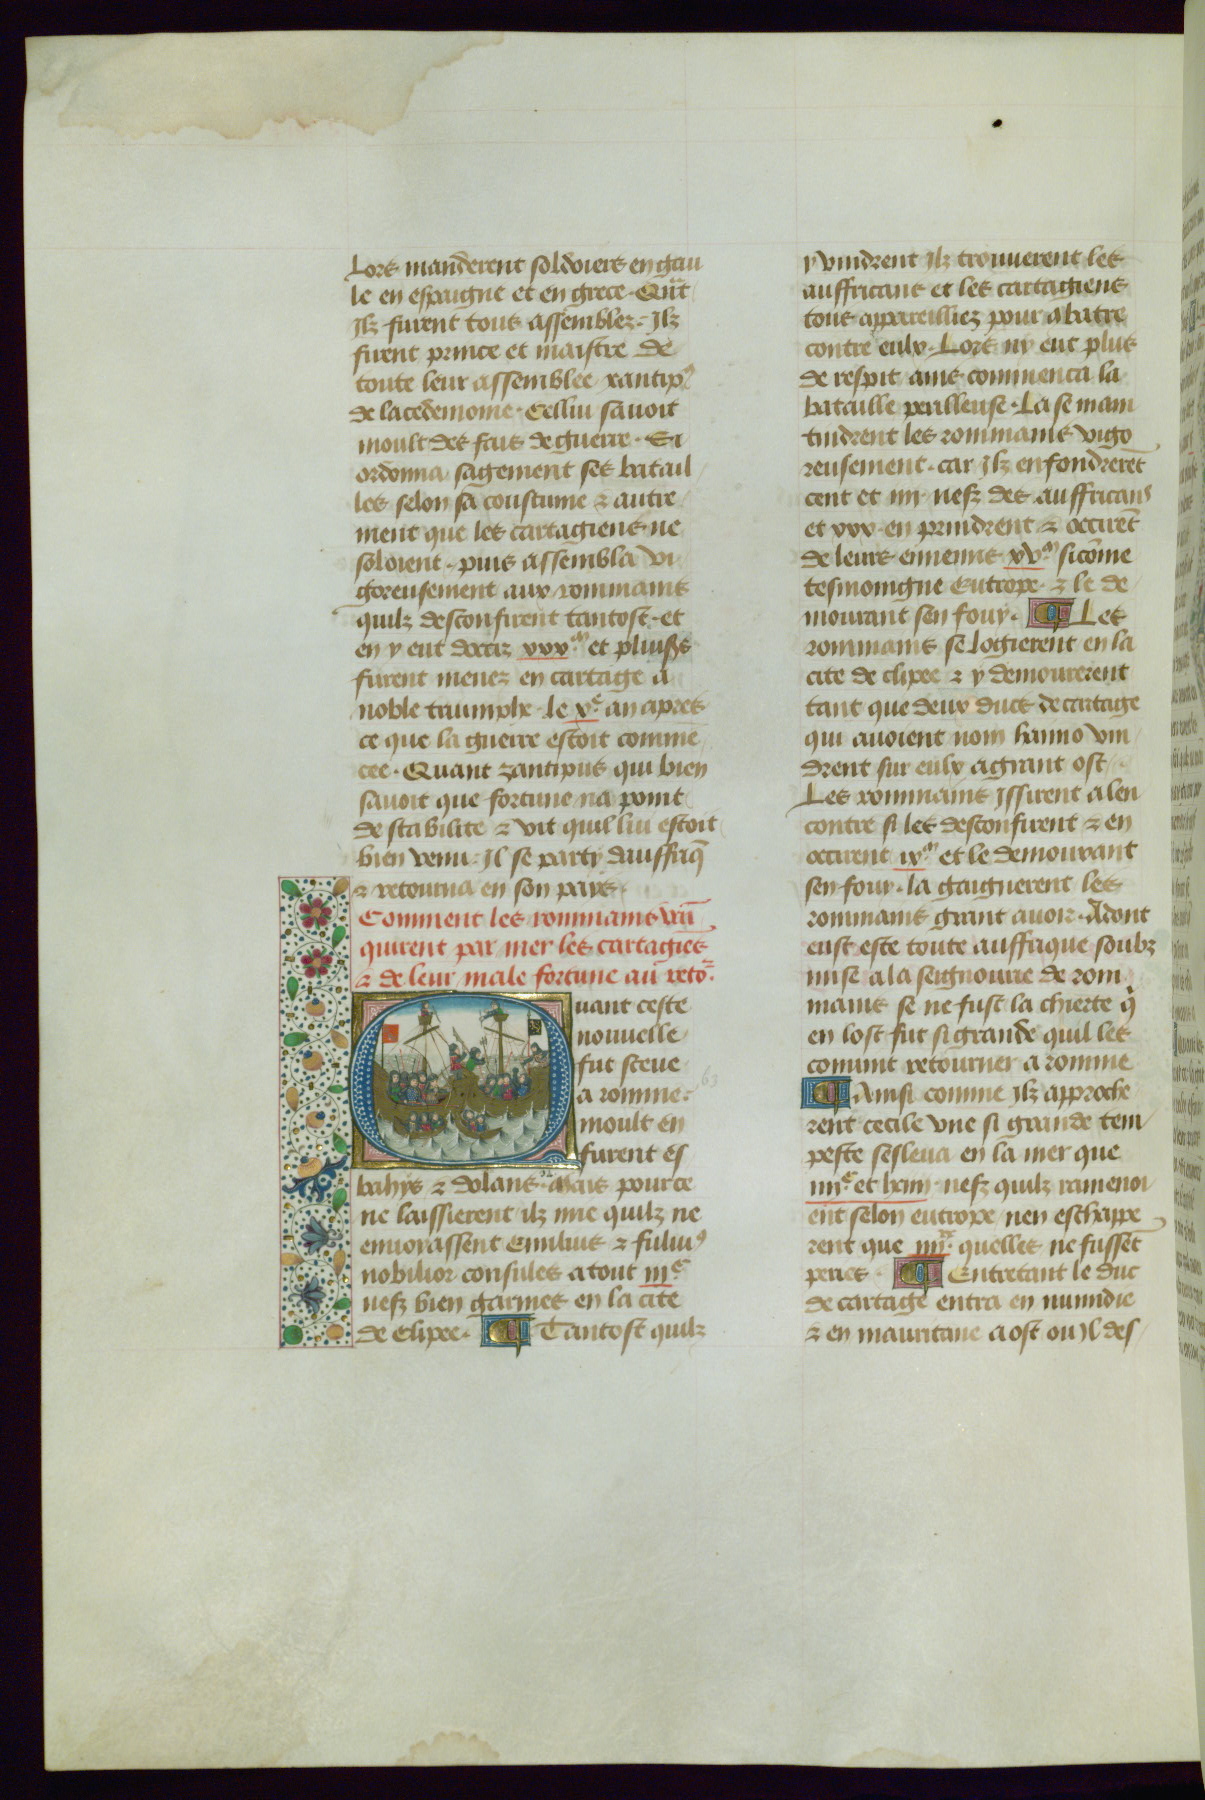 Lors manderent soldoiers en gau
le en espaigne et en grece. Qūt
Ilz furent tous assemblez. Ilz
firent prince et maistre de
toute leur assemblee xantipꝰ
de lacedemone. Cellui sauoit
moult des fais de guerre. Si
ordonna sagement ses batail
les selon sa coustume & autre
ment que les cartagiens ne
soloient. puis assembla vi
goreusement aux rommains
quilz desconfirent tantost. et
en y eut doccis xxx.ᵐ et pluisrs
furent menez en cartage a
noble triumphe. le xᵉ an apres
ce que la guerre estoit comme
cee. Quant zantipus qui bien
sauoit que fortune na point
de stabilite & vit quil lui estoit
bien venu. Il se party dauffriq̄
& retourna en son pays.
Comment les rommains vaī
quirent par mer les cartagiēs
& de leur male fortune au retoꝰ.
Quant ceste
nouuelle
fut sceue
a romme.
moult en
furent es
bahys & dolans. Mais pour ce
ne laissierent ilz mie quilz ne
enuoiassent Emilius & fuluiꝰ
nobilior consules a tout iiiᶜ
nefz bien garnies en la cite
de Clipee. Tantost quilz
y vindrent Ilz trouuerent les
auffricans et les cartagiens
tous appareilliez pour abatre
contre eulx. Lors ny eut plus
de respit ains commenca la
bataille perilleuse. La se main
tindrent les rommains vigo
reusement. car Ilz enfondrerēt
cent et iiii nefz des auffricans
et xxx. en prindrent & occirēt
de leurs ennemis xvᵐ sicōme
tesmoingne Eutrope. & le de
mourant sen fouy. Les
rommains se logierent en la
cite de clipee & y demourerent
tant que deux ducs de cartage
qui auoient nom hanno vin
drent sur eulx a grant ost
Les rommains Issirent a len
contre si les desconfirent & en
occirent ixᵐ et le demourant
sen fouy. la gaignerent les
rommains grant auoir. Adont
eust este toute auffrique soubz
mise a la seignourie de rom
mains se ne fust la chierte q̄
en lost fut si grande quil les
conuint retourner a romme
Ainsi comme Ilz approche
rent cecile vne si grande tem
peste sesleua en la mer que
iiiiᶜ et lxiiii nefz quilz ramenoi
ent selon eutrope nen eschappe
rent que iiii.ˣˣ quelles ne fusset
peries. Entretant le duc
de cartage entra en numidie
& en mauritane a ost ou yl des